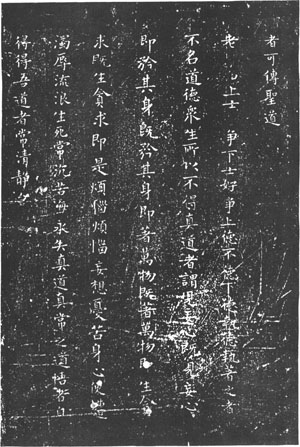 者可傳聖道
老 上士 爭下士好爭上德不德下德執德執著之者
不名道德衆生所以不得真道者謂 妄心既見妄心
即矜其身既矜其身即著萬物既著萬物即生貪
求既生貪求即是煩惱煩惱妄想憂苦身心便遭
濁辱流浪生死常沉苦海永失真道真常之道悟者自
得得吾道者常清靜矣